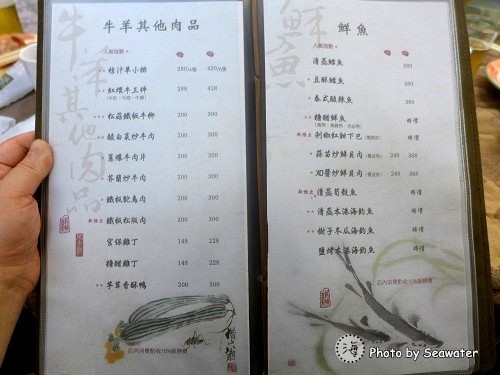 牛羊其他肉品
人氣指數★
小 中
★★ 椿汁羊小排 280/4隻 420/6隻
★★ 紅燒牛三件 288 428
★★ 松菇鐵板牛柳 200 300
★★ 酸白菜炒牛肉 200 300
蔥爆牛肉片 200 300
芥蘭炒牛肉 200 300
鐵板鴕鳥肉 200 300
新推出 鐵板松阪肉 200 300
宮保雞丁 148 228
糖醋雞丁 148 228
★★ 芋茸香酥鴨 200 300
店內消費酌收10%服務費
牛羊其他肉品
鮮魚
人氣指數★
小 中
清蒸鱈魚 380
★ 豆酥鱈魚 380
★ 泰式酸辣魚 380
★★ 糖醋鮮魚 時價
新推出 剁椒紅鮭下巴 時價
★ 蒜苗炒鮮貝肉 248 368
★ XO醬炒鮮貝肉 248 368
新推出★ 清蒸筍殼魚 時價
★★ 清蒸本港海釣魚 時價
★★ 樹子冬瓜海釣魚 時價
鹽烤本港海釣魚 時價
店內消費酌收10%服務費
鮮魚
海 Photo by Seawater